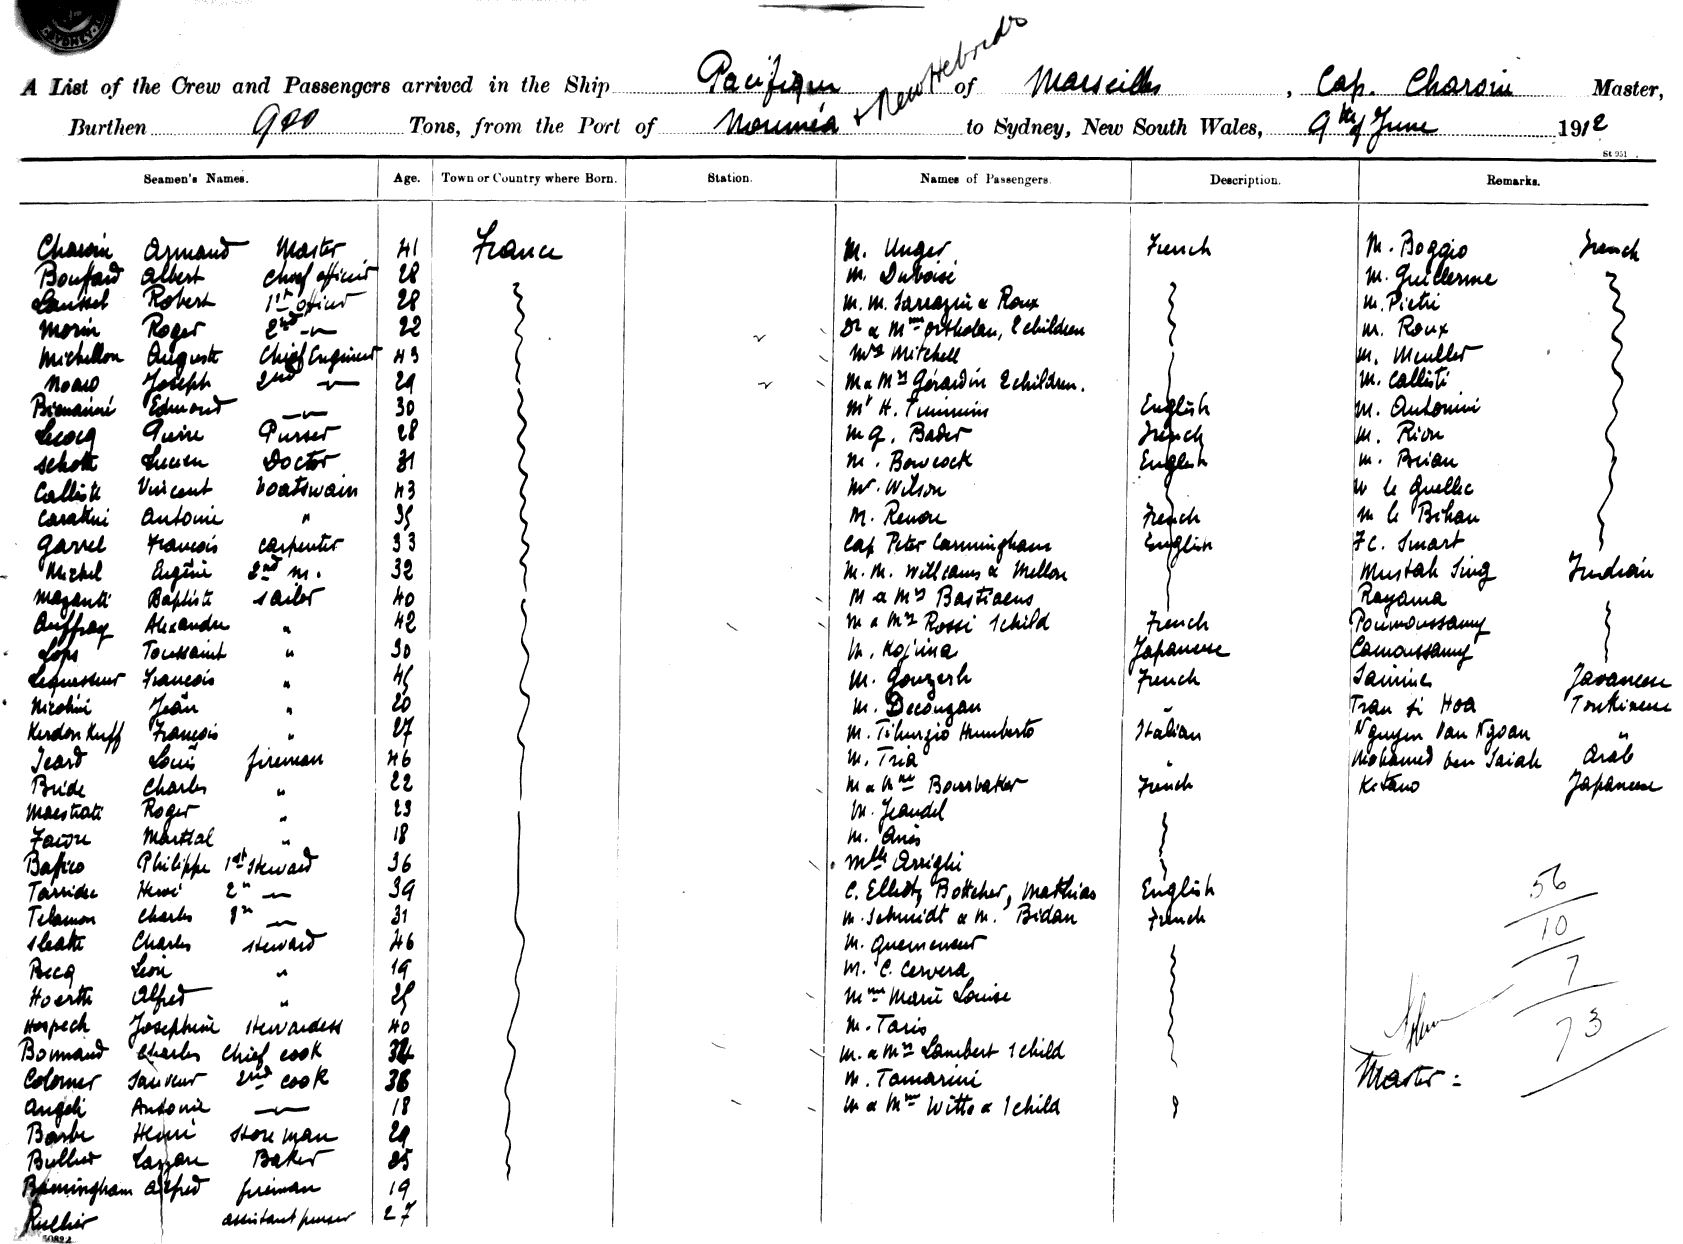 A List of the Crew and Passengers arrived in the Ship Pacifique of Marseilles, Cap. Charoin Master,
+ New Hebrides
Burthen 900 Tons, from the Port of Nouméa to Sydney, New South Wales, 9th of June 1912
St 951
Seamen's Names. Age. Town or Country where Born. Station. Names of Passengers. Description. Remarks.
Charoin Armand Master 41 France M. Unger French M. Boggio French
Bouffard Albert Chief officer 28 M. Duboisé M. Guillerme
Laussel Robert 1st officer 28 M. M. Sarrazin & Roux M. Pietri
Morin Roger 2nd 22 Dr & Mme Ortholan, 2 children M. Roux
Michellon Auguste Chief Engineer 43 Mrs Mitchell M. Meuller
Joseph 2nd 29 M & Mrs Gérardin 2 children. M. Callisti
Edmond 30 Mr H. Timmins English M. Antonini
Lecocq Pierre Purser 28 M G. Bader French M. Riou
Schott Lucien Doctor 31 M. Bowcock English M. Brian
Calliste Vincent boatswain 43 Mr. Wilson M le Quellec
Carattini Antoine " 35 M. Renou French M le Bihan
Garrel François carpenter 33 Cap Peter Carmingham English F C. Smart
Michel Eugène 2nd m. 32 M. M. Williams & Mellon Mustah Sing Indian
Mazanti Baptiste sailor 40 M & Mrs Bastiaens Rayama
Auffray Alexandre " 42 M & Mrs Rossi 1 child French Poumoussamy
Lops Toussaint " 30 M. Kojima Japanese Camoussamy
Lequesseur François " 45 M. Gouzerh French Javanese
Nicolini Jean " 20 M. Decougan " Tran Si Hoa Tonkinese
Kerdonkuff François " 27 M. Tiburzio Humberto Italian Nguyen Van Ngoan "
Icard Louis fireman 46 M. Tria " Mohamed ben Saiah Arab
Bride Charles " 22 M & Mme Bourbaker French Kitano Japanese
Maestrati Roger " 23 M. Jeandel
Favre Martial " 18 M. Anis
Bafico Philippe 1st Steward 36 Mlle Arrighi
Henri 2nd 39 C. Elliott, Bottcher, Mathias English
Telamon Charles 3rd 31 M. Schmidt & M. Bidan French
Charles Steward 46 M. Quemeneur
Becq Léon " 19 M. C. Cervera
Hoerth Alfred " 25 Mme Marie Louise
Hospech Josephine Stewardess 40 M. Taris
Bonnaud Charles Chief cook 34 M. & Mrs Lambert 1 child
Colomer Sauveur 2nd cook 38 M. Tamarini
Angeli Antoine 18 M & Mme Witts & 1 child
Barbe Henri Store man 29
Bullier Lazare Baker 25
Bermingham Alfred fireman 19
Rullier assistant purser 27
56
10
7
73
Master :